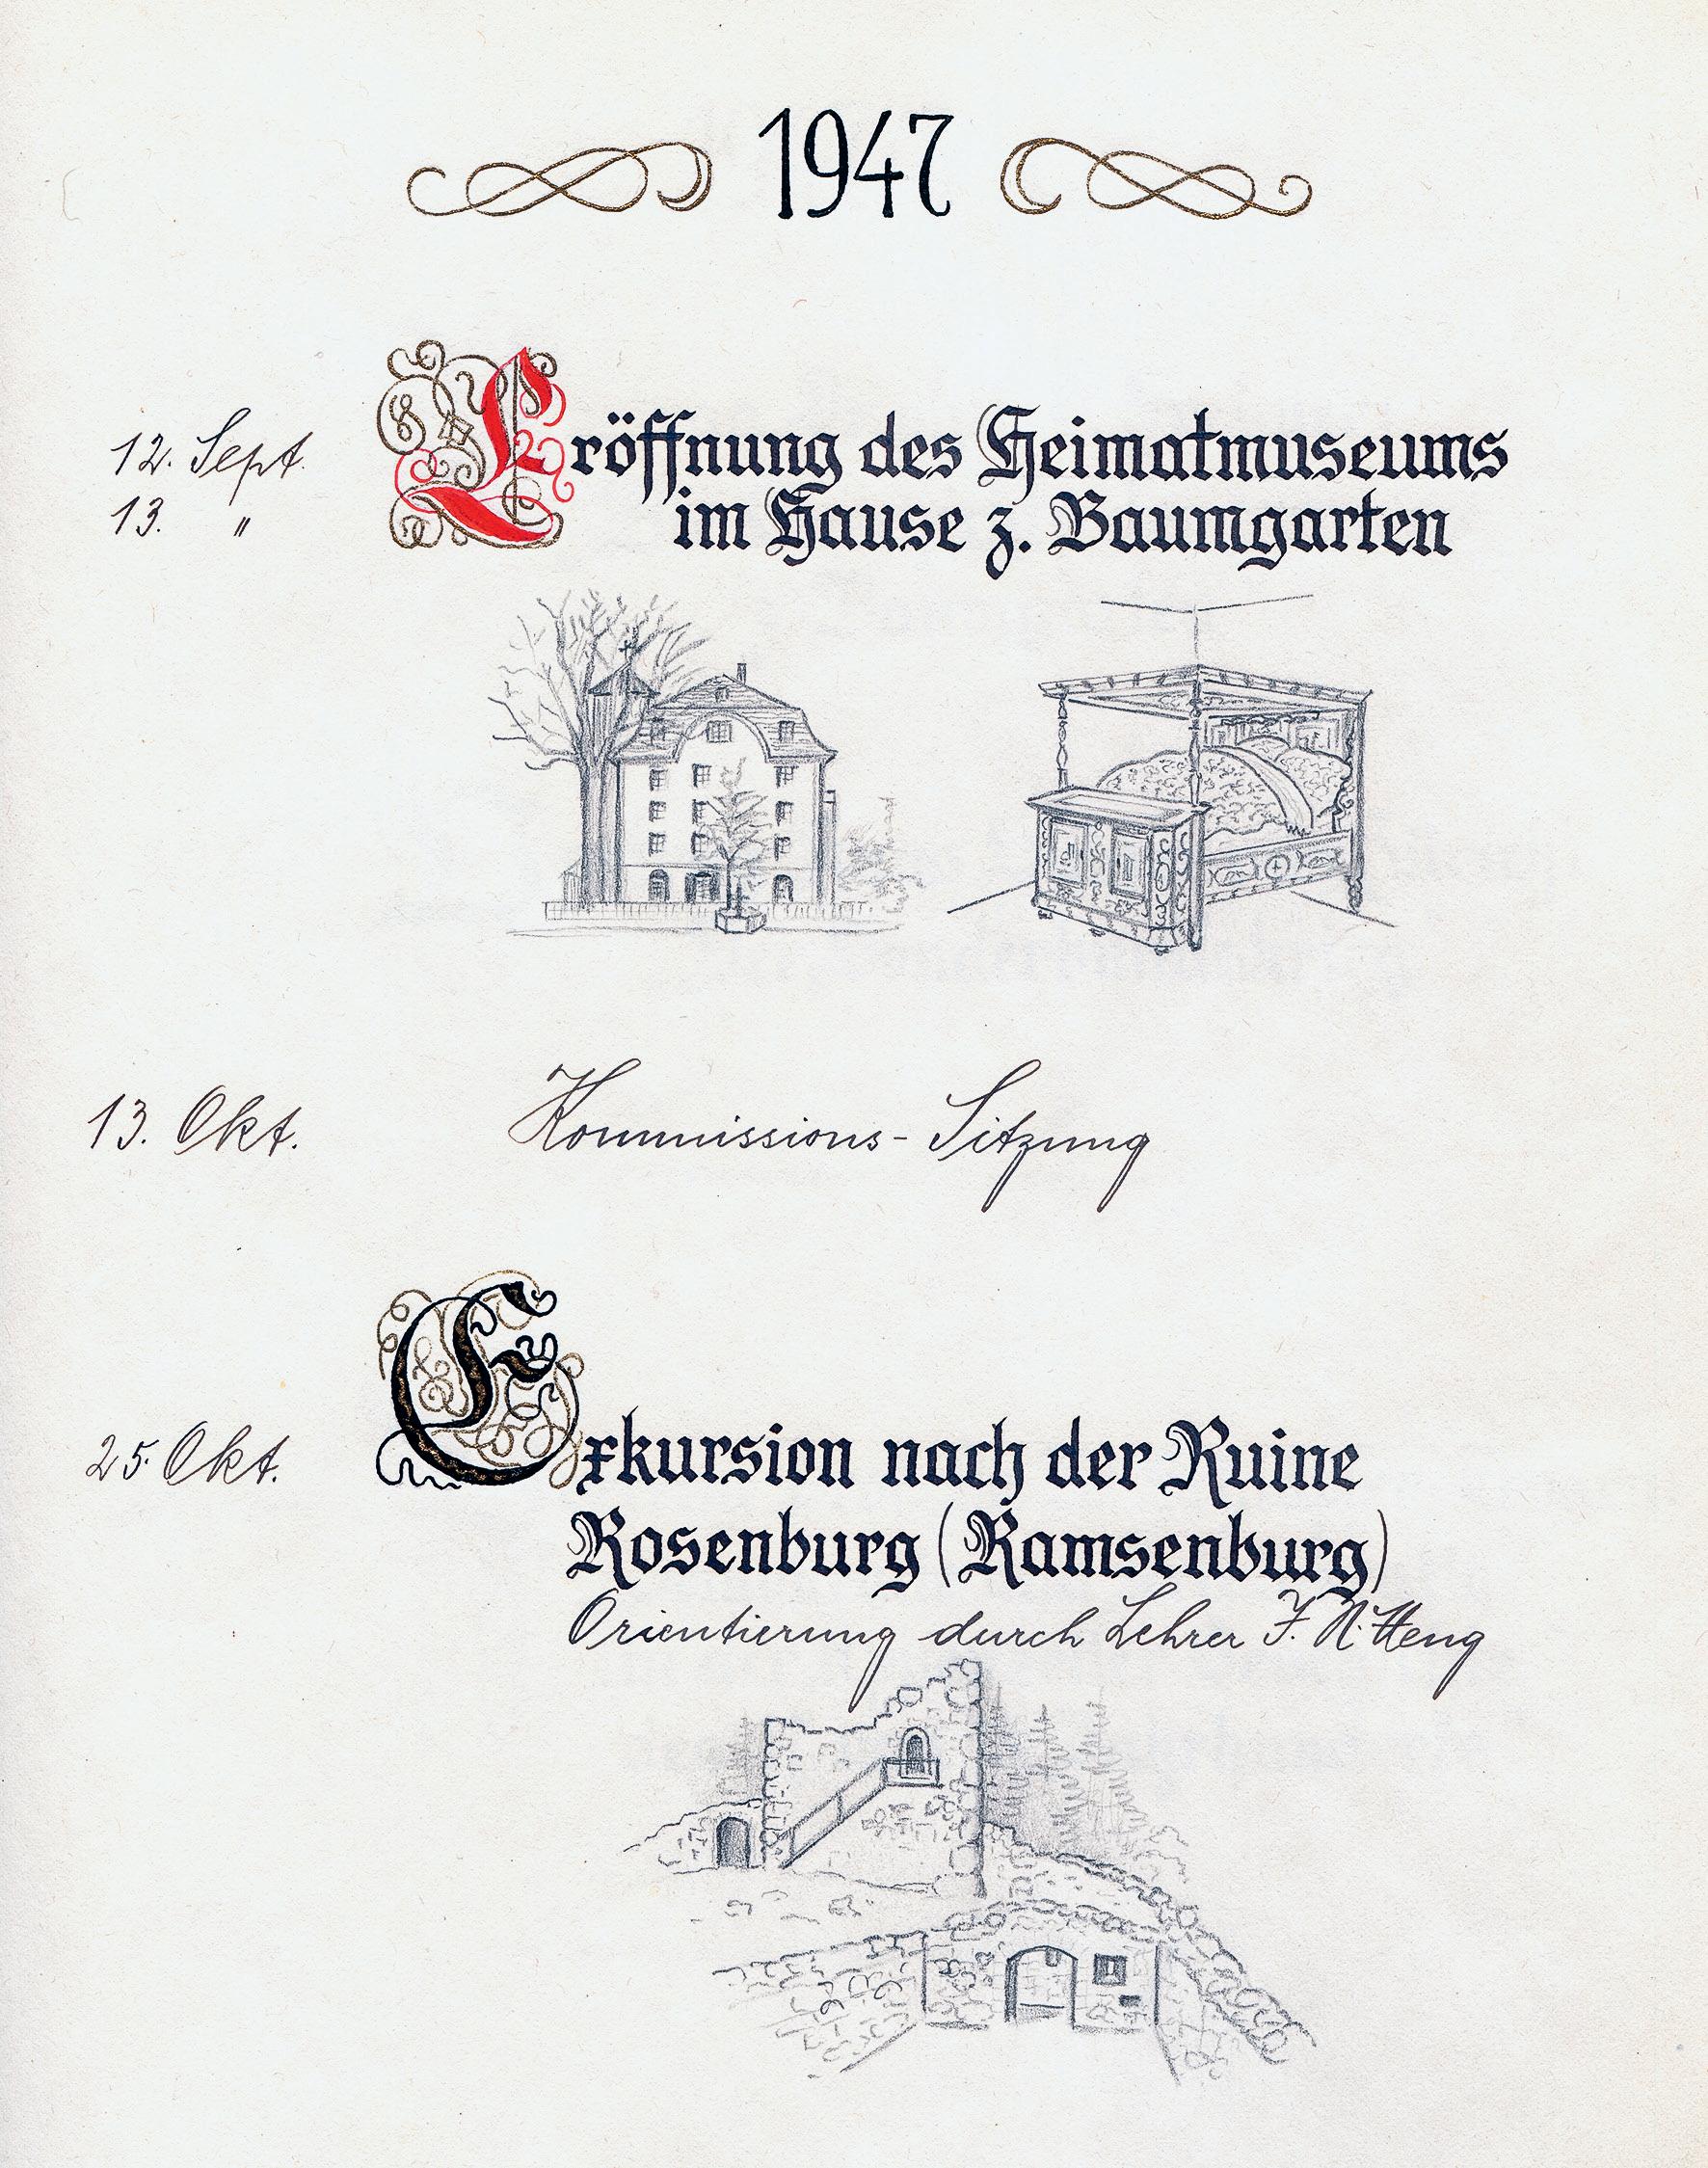 1947
12. Sept. Eröffnung des Heimatmuseums
13. " im Hause z. Baumgarten
13. Okt. Kommissions-Sitzung
25. Okt. Exkursion nach der Ruine
Rosenburg (Ramsenburg)
Orientierung durch Lehrer J. N. Heng